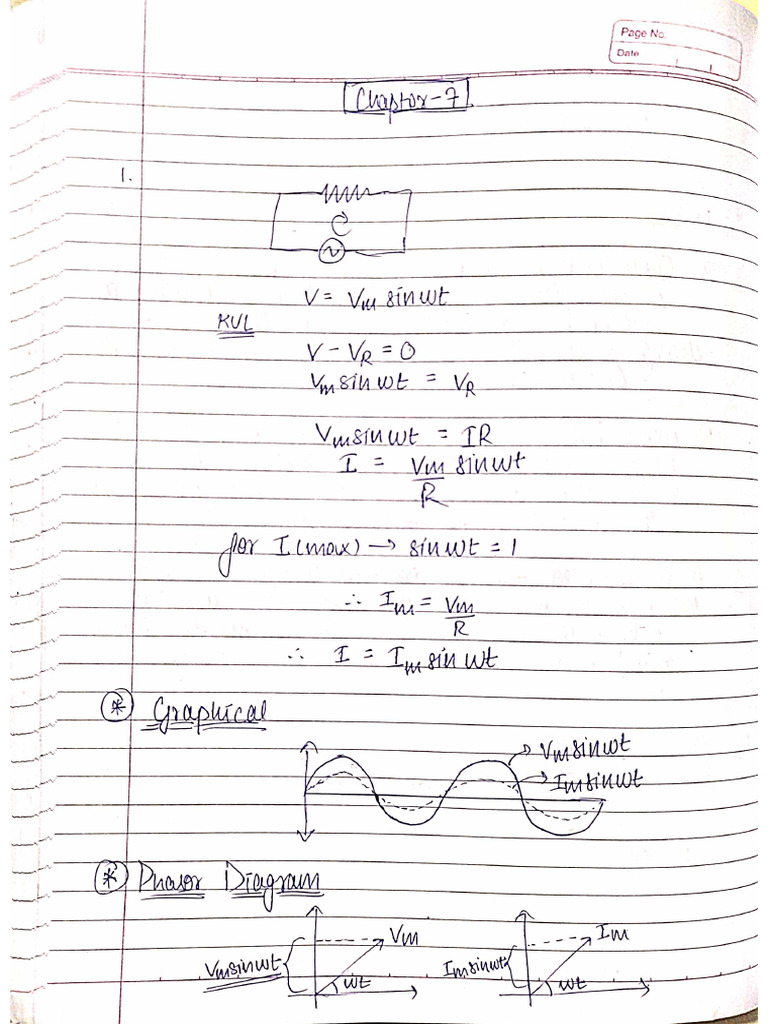 Page No.
Date
Chapter-7
1.
V = Vm sin wt
KVL
V - VR = 0
Vm sin wt = VR
Vm sin wt = IR
I = Vm/R sin wt
for I (max) → sin wt = 1
∴ Im = Vm/R
∴ I = Im sin wt
* Graphical
Vm sin wt
Im sin wt
* Phasor Diagram
Vm sin wt Vm wt Im sin wt Im wt